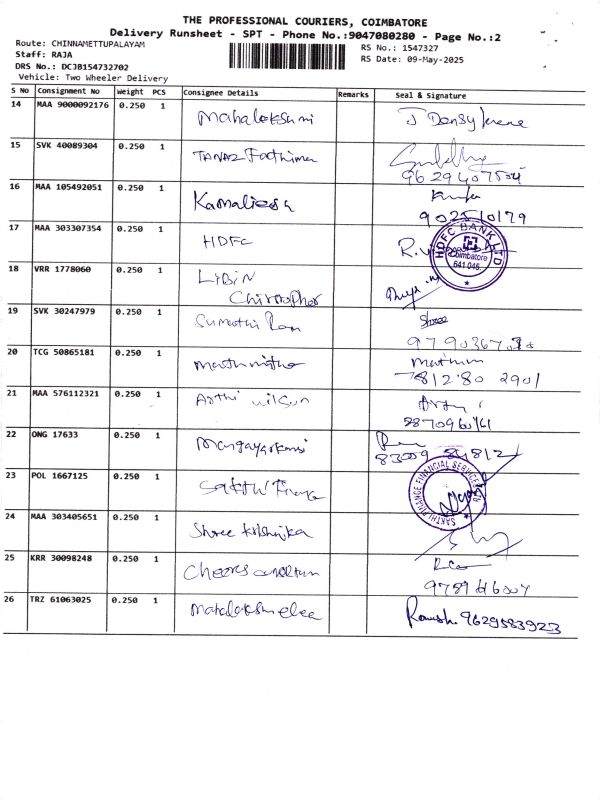 THE PROFESSIONAL COURIERS, COIMBATORE
Delivery Runsheet - SPT - Phone No.:9047080280 - Page No.:2
Route: CHINNAMETTUPALAYAM
RS No.: 1547327
Staff: RAJA
RS Date: 09-May-2025
DRS No.: DCJB154732702
Vehicle: Two Wheeler Delivery
S No Consignment No Weight PCS Consignee Details Remarks Seal & Signature
14 MAA 9000092176 0.250 1 Mahalakshmi J Densy
15 SVK 40089304 0.250 1 TANAZ Fathima
9629407504
16 MAA 105492051 0.250 1 Kamaleesh
902510179
17 MAA 303307354 0.250 1 HDFC
HDFC BANK LTD
Coimbatore
641 045.
18 VRR 1778060 0.250 1 LIBIN
Christopher
19 SVK 30247979 0.250 1 Sumathi Ram Shree
20 TCG 50865181 0.250 1
7812 80 2901
21 MAA 576112321 0.250 1 Arthi wilson
22 ONG 17633 0.250 1 Mangayarkarasi
23 POL 1667125 0.250 1 Sakthi Finance
SAKTHI FINANCE FINANCIAL SERVICES LTD
24 MAA 303405651 0.250 1 Shree
25 KRR 30098248 0.250 1 Cheers
26 TRZ 61063025 0.250 1 Ramesh 9629583923